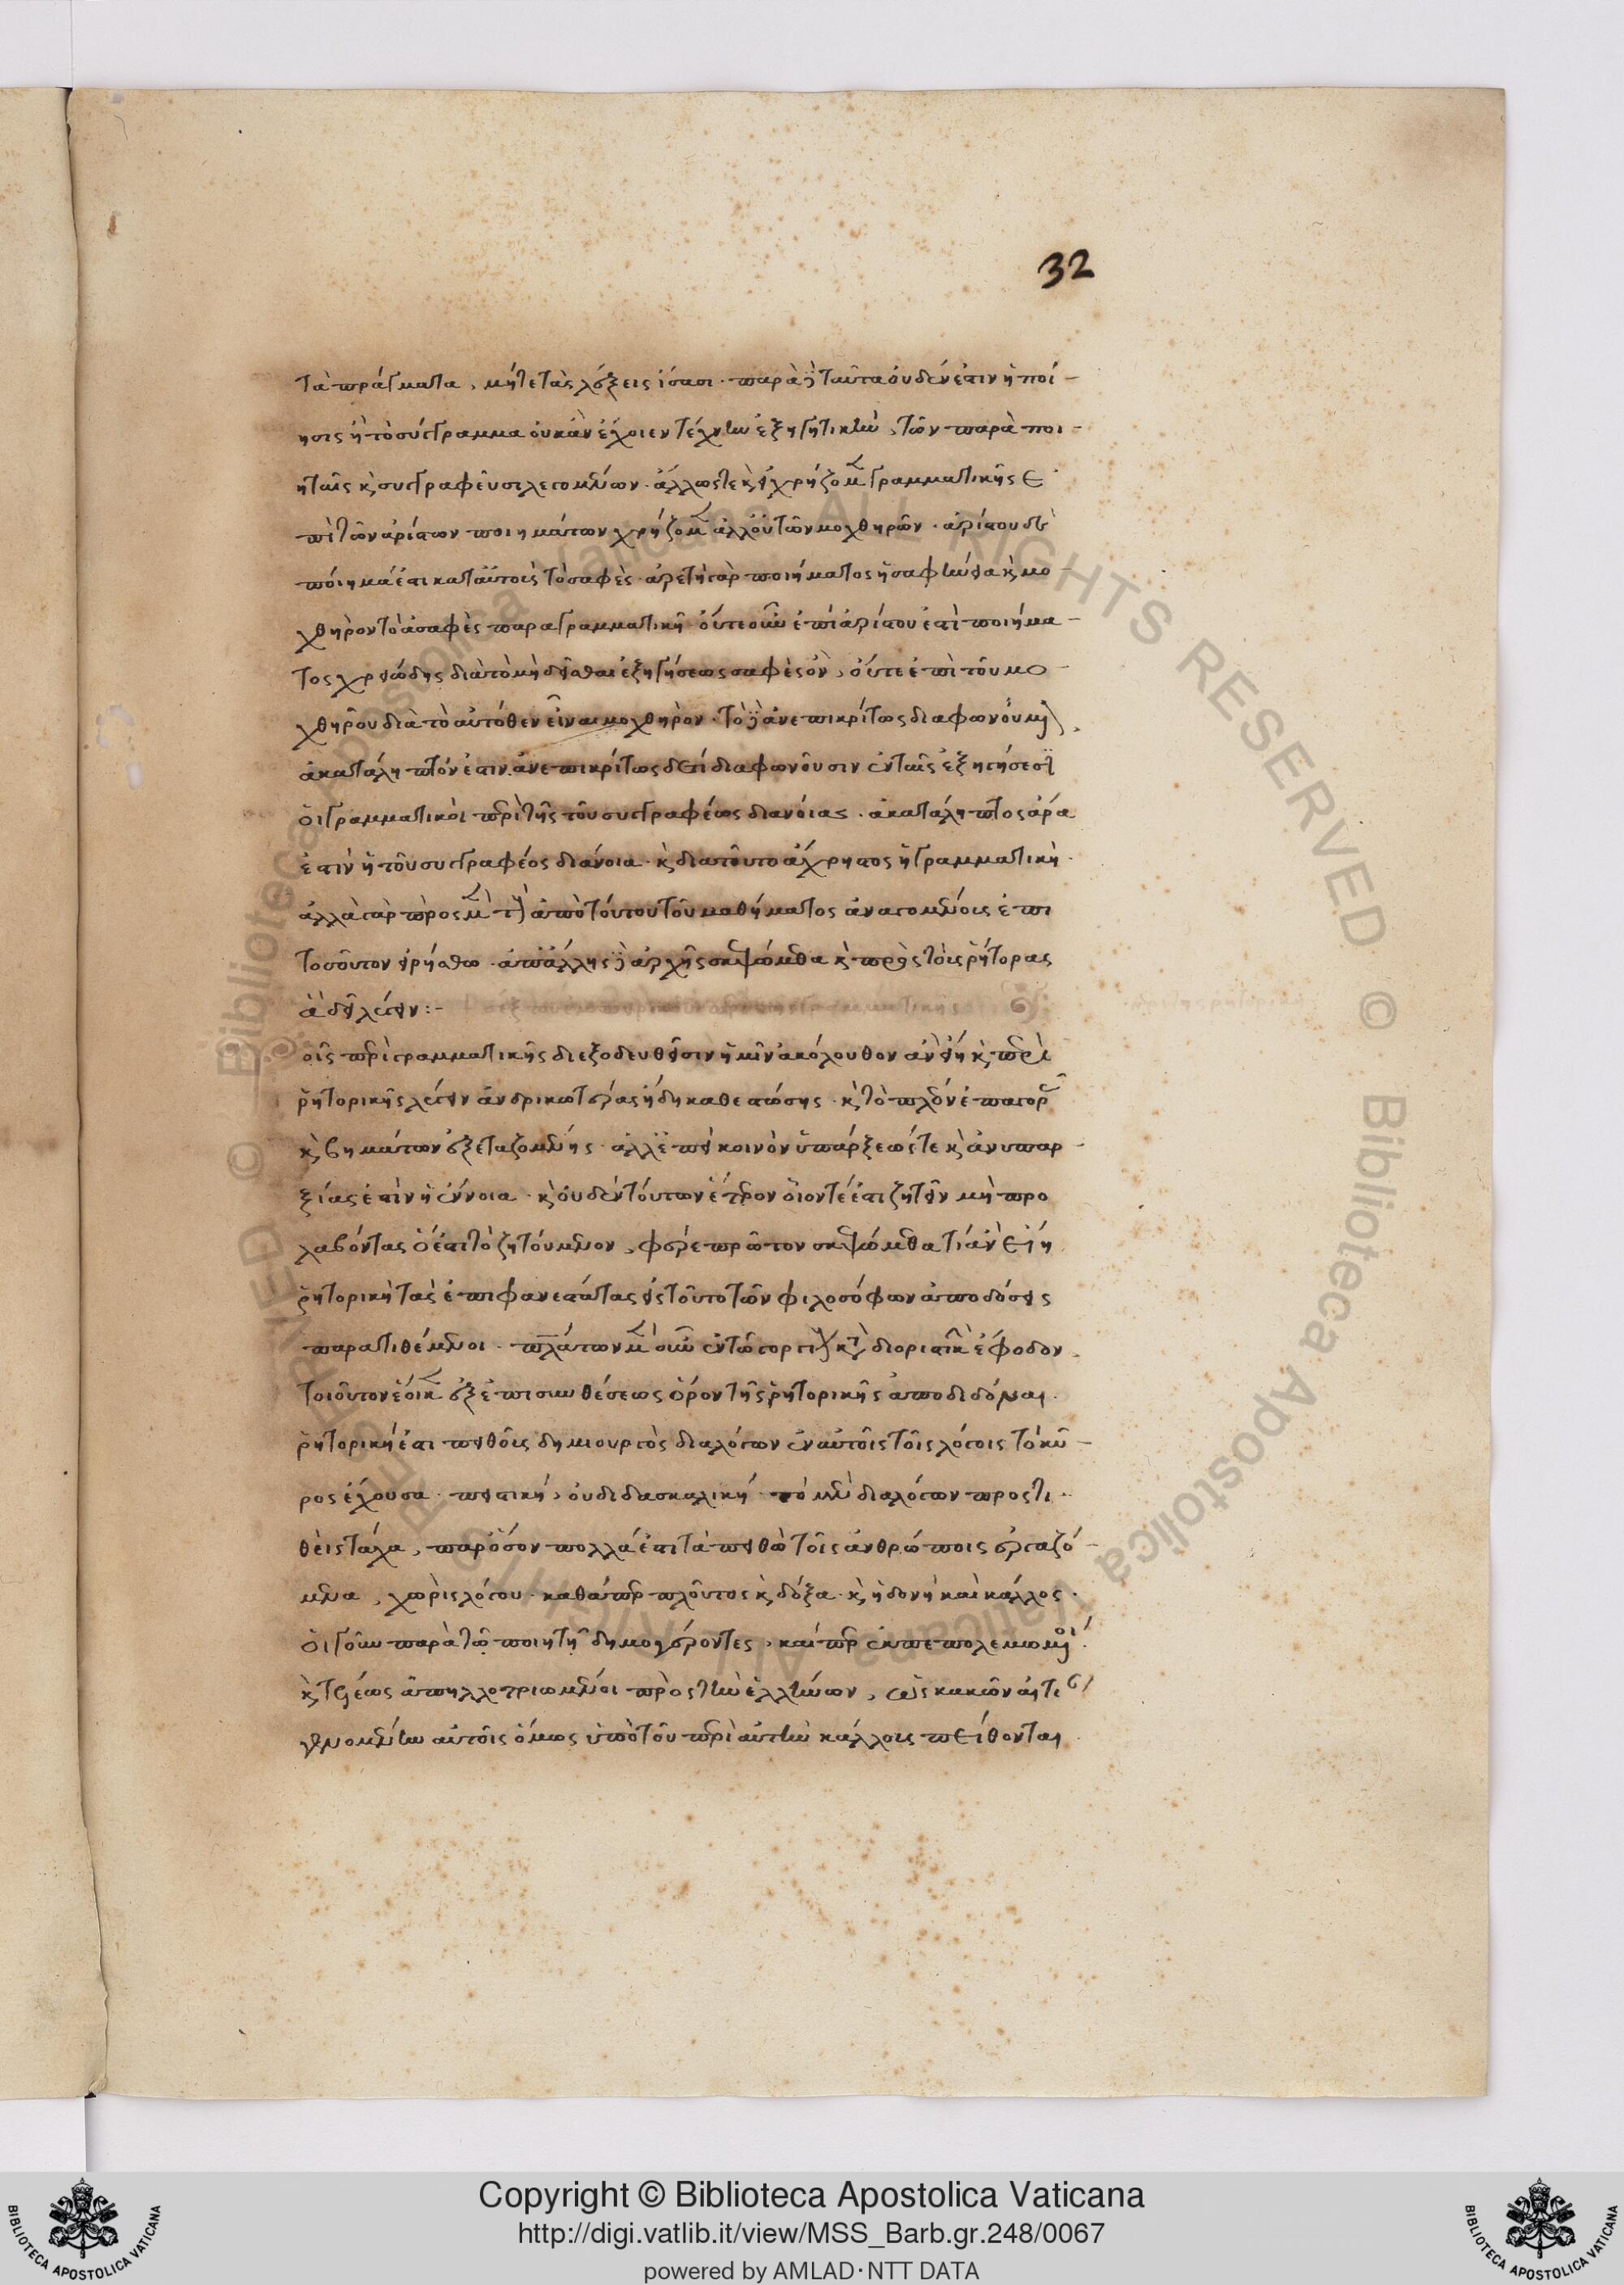 32
τὰ πράγματα, μήτε τὰς λέξεις ἴσασι. παρὰ δὲ ταῦτα οὐδέν ἐστιν ἡ ποί-
ησις ἢ τὸ σύγγραμμα οὐκ ἂν ἔχοιεν τέχνην ἐξηγητικὴν, τῶν παρὰ ποι-
ηταῖς καὶ συγγραφεῦσι λεγομένων. ἄλλως τε καὶ εἰ χρήζομεν γραμματικῆς ἐ
πὶ τῶν ἀρίστων ποιημάτων χρήζομεν ἀλλ' οὐ τῶν μοχθηρῶν. ἀρίστου δὲ
ποίημά ἐστι κατ' αὐτοὺς τὸ σαφὲς. ἀρετὴ γὰρ ποιήματος ἡ σαφήνεια καὶ μο
χθηρὸν τὸ ἀσαφὲς παρα γραμματικῇ. οὔτε οὖν ἐπὶ ἀρίστου ἐστὶ ποιήμα-
τος χρειώδης διὰ τὸ μὴ δεῖσθαι ἐξηγήσεως σαφὲς ὂν, οὔτε ἐπὶ τοῦ μο-
χθηροῦ διὰ τὸ αὐτόθεν εἶναι μοχθηρὸν. τὸ δὲ ἀνεπικρίτως διαφωνούμενον,
ἀκατάληπτόν ἐστιν. ἀνεπικρίτως δ' ἔτι διαφωνοῦσιν ἐν ταῖς ἐξηγήσεσιν
οἱ γραμματικοὶ περὶ τῆς τοῦ συγγραφέως διανοίας. ἀκατάληπτος ἄρα
ἐστὶν ἡ τοῦ συγγραφέος διάνοια. καὶ διατοῦτο ἄχρηστος ἡ γραμματικὴ.
ἀλλὰ γὰρ πρὸς μὲν τοὺς ἀπὸ τούτου τοῦ μαθήματος ἀναγομένους ἐπι
τοσοῦτον εἰρήσθω. ἀπ' ἄλλης δὲ ἀρχῆς σκεψώμεθα καὶ πρὸς τοὺς ῥήτορας
ἃ δεῖ λέγειν:-
οἷς περὶ γραμματικῆς διεξοδευθεῖσιν ἡμῖν ἀκόλουθον ἂν εἴη καὶ περὶ
ῥητορικῆς λέγειν ἀνδρικωτέρας ἤδη καθεστώσης. καὶ τὸ πλέον ἐπ' ἀγορᾶς
καὶ βημάτων ἐξεταζομένης. ἀλλ' ἐπεὶ κοινὸν ὑπάρξεώς τε καὶ ἀνυπαρ-
ξίας ἐστὶν ἡ ἔννοια. καὶ οὐδὲν τούτων ἕτερον οἷόν τέ ἐστι ζητεῖν μὴ προ
λαβόντας ὅ ἐστι τὸ ζητούμενον, φέρε πρῶτον σκεψώμεθα τί ἂν εἴη
ῥητορικὴ τὰς ἐπιφανεστάτας εἰς τοῦτο τῶν φιλοσόφων ἀποδόσεις
παρατιθέμενοι. πλάτων μὲν οὖν ἐν τῷ γοργίᾳ κατὰ διοριστικὴν ἔφοδον.
τοιοῦτον ἔοικεν ἐξ ἐπισυνθέσεως ὅρον τῆς ῥητορικῆς ἀποδιδόναι.
ῥητορική ἐστι πειθοῦς δημιουργὸς διαλόγων ἐν αὐτοῖς τοῖς λόγοις τὸ κῦ-
ρος ἔχουσα. πειστική, οὐ διδασκαλική. τὸ μὲν διαλόγων προστι-
θεὶς τάχα, παρόσον πολλά ἐστι τὰ πειθὼ τοῖς ἀνθρώποις ἐργαζό-
μενα, χωρὶς λόγου. καθάπερ πλοῦτος καὶ δόξα. καὶ ἡδονὴ καὶ κάλλος.
οἱ γοῦν παρὰ τῷ ποιητῇ δημογέροντες, καίπερ ἐκπεπολεμωμένοι.
καὶ τελέως ἀπηλλοτριωμένοι πρὸς τὴν ἑλένην, ὡς κακῶν αἰτίαν
γενομένην αὐτοῖς ὅμως ὑπὸ τοῦ περὶ αὐτὴν κάλλους πείθονται
Copyright © Biblioteca Apostolica Vaticana
http://digi.vatlib.it/view/MSS_Barb.gr.248/0067
powered by AMLAD·NTT DATA